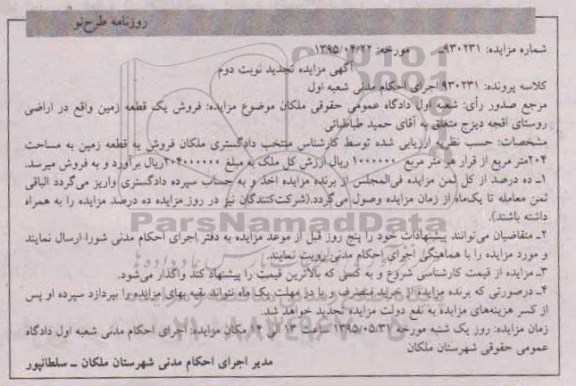 روزنامه طرح‌نو
شماره مزایده: ۹۳۰۲۳۱ـ مورخه: ۱۳۹۵/۰۴/۲۲
آگهی مزایده تجدید نوبت دوم
کلاسه پرونده: ۹۳۰۲۳۱ اجرای احکام مدنی شعبه اول
مرجع صدور رأی: شعبه اول دادگاه عمومی حقوقی ملکان موضوع مزایده: فروش یک قطعه زمین واقع در اراضی
روستای آقجه دیزج متعلق به آقای حمید طباطبائی
مشخصات: حسب نظریه ارزیابی شده توسط کارشناس منتخب دادگستری ملکان فروش یه قطعه زمین به مساحت
۲۰۴متر مربع از قرار هر متر مربع ۱۰۰۰۰۰۰ ریال ارزش کل ملک به مبلغ ۲۰۴۰۰۰۰۰۰ریال برآورد و به فروش میرسد.
۱ـ ده درصد از کل ثمن مزایده فی‌المجلس از برنده مزایده اخذ و به حساب سپرده دادگستری واریز می‌گردد الباقی
ثمن معامله تا یک‌ماه از زمان مزایده وصول می‌گردد.(شرکت‌کنندگان نیز در روز مزایده ده درصد مزایده را به همراه
داشته باشند).
ParsNamadData
۲ـ متقاضیان می‌توانند پیشنهادات خود را پنج روز قبل از موعد مزایده به دفتر اجرای احکام مدنی شورا ارسال نمایند
و مورد مزایده را با هماهنگی اجرای احکام مدنی رویت نمایند.
۳ـ مزایده از قیمت کارشناسی شروع و به کسی که بالاترین قیمت را پیشنهاد کند واگذار می‌شود.
۴ـ درصورتی که برنده مزایده از خرید منصرف و یا در مهلت یک ماه نتواند بقیه بهای مزایده را بپردازد سپرده او پس
از کسر هزینه‌های مزایده به نفع دولت مزایده تجدید خواهد شد.
زمان مزایده: روز یک شنبه مورخه ۱۳۹۵/۰۵/۳۱ ساعت ۱۳ الی ۱۴ مکان مزایده: اجرای احکام مدنی شعبه اول دادگاه
عمومی حقوقی شهرستان ملکان
مدیر اجرای احکام مدنی شهرستان ملکان ــ سلطانپور